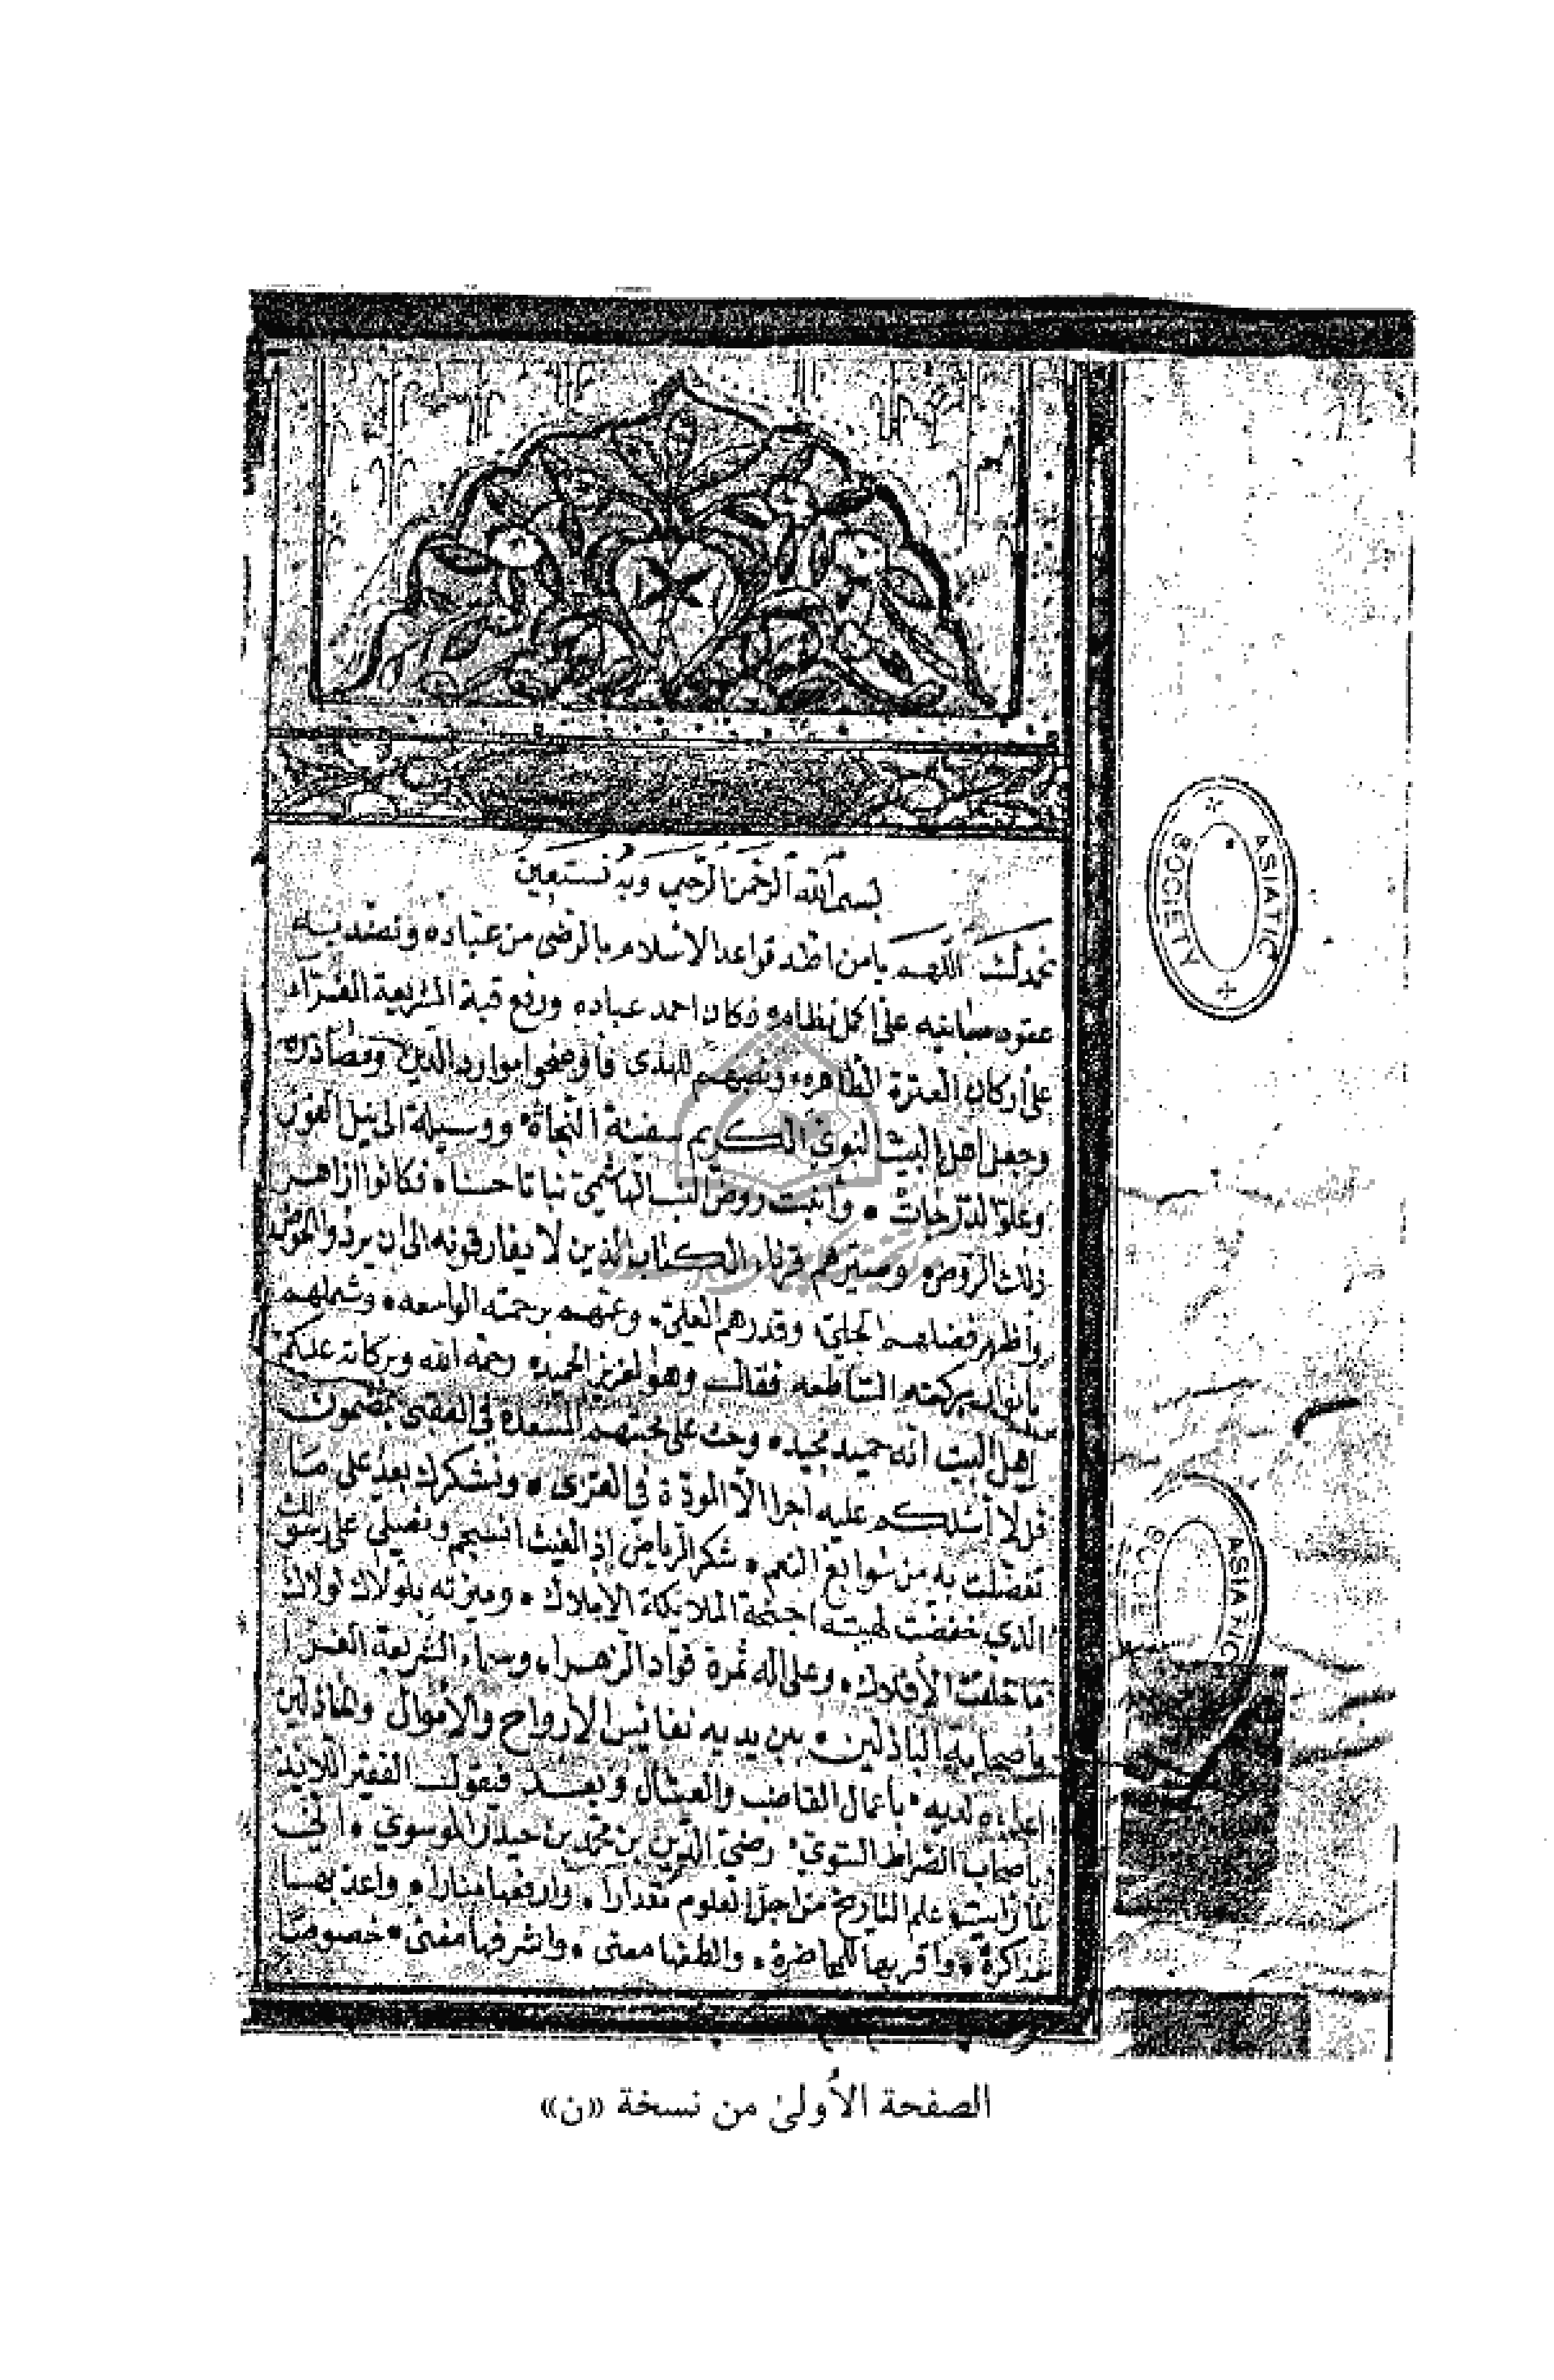 بسم الله الرحمن الرحيم وبه نستعين
نحمدك اللهم يا من اطد قواعد الاسلام بالرضى من عباده ونضد به
عقود مبانيه على اكمل نظامه فكان احمد عباده ورفع قبة الشريعة الغراء
على أركان العترة الطاهره ونصبهم للهدى فأوضحوا موارد الدين ومصادره
وجعل اهل البيت النبوي الكريم سفينة النجاة ووسيلة الى نيل الفوز
وعلو الدرجات وأنبت روض النسب الهاشمي نباتا حسنا فكانوا ازاهر
ذلك الروض وصيرهم قرناء الكتاب الذين لا يفارقونه الى ان يردوا الحوض
وأظهر فضلهم الجلي وقدرهم العلي وعمهم برحمته الواسعه وشملهم
بأنوار بركته الساطعه فقال وهو العزيز الحميد رحمة الله وبركاته عليكم
اهل البيت انه حميد مجيد وحث على محبتهم المسعدة في العقبى بمضمون
قل لا أسئلكم عليه اجرا الا المودة في القربى ونشكرك بعد على ما
تفضلت به من سوابغ النعم شكر الرياض إذ الغيث انسجم ونصلي على رسولك
الذي خفضت لهيبته اجنحة الملائكة الاملاك وميزته بلولاك لولاك
ما خلقت الأفلاك وعلى اله ثمرة فؤاد الزهراء وسماء الشريعة الغرا
وأصحابه الباذلين بين يديه نفائس الارواح والأموال والخاذلين
اعداءه لديه بأعمال القاضب والعسال وبعد فيقول الفقير اللائذ
بأصحاب الصراط السوي رضي الدين بن محمد بن حيدر الموسوي انني
لما رأيت علم التاريخ من اجل العلوم مقدارا وارفعها منارا واعذبها
مذاكرة وأقربها للمحاضرة والطفها معنى واشرفها مغنى خصوصا
ASIATIC SOCIETY
ASIATIC SOCIE
الصفحة الأولىٰ من نسخة «ن»